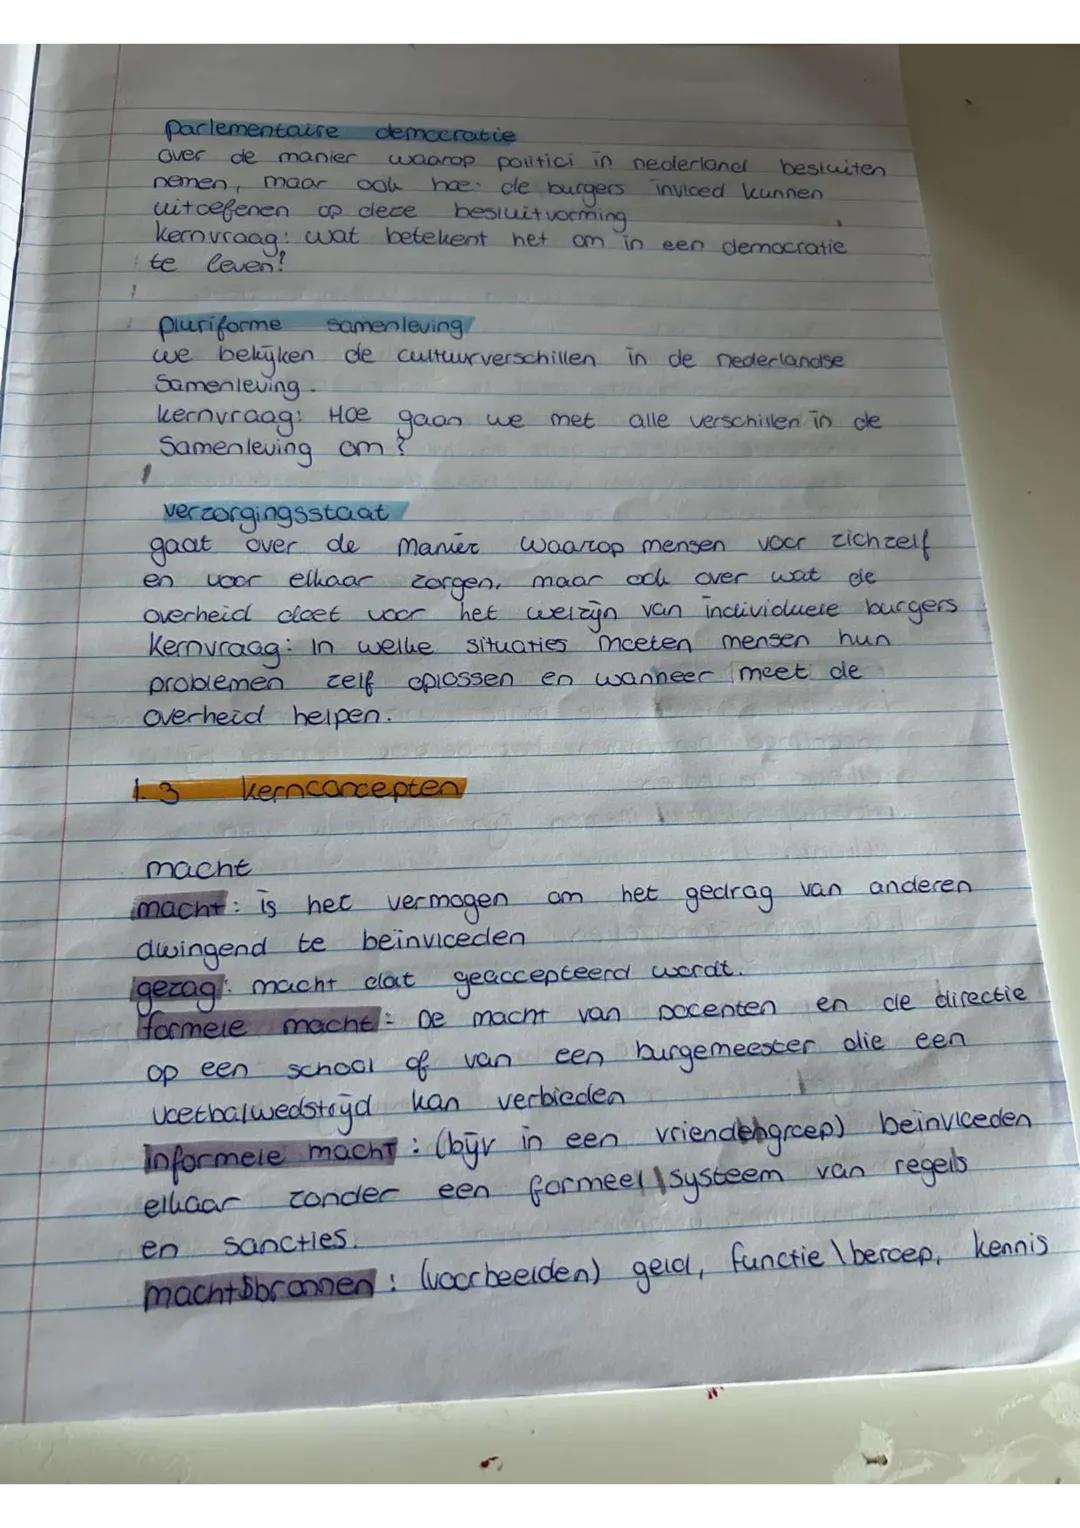 parlementaire democratie
over de manier waarop politici in nederland besluiten
nemen, maar ook hoe de burgers invloed kunnen
uitoefenen op deze besluitvorming
kernvraag: wat betekent het om in een democratie
te leven?
pluriforme samenleving
we bekijken de cultuurverschillen in de nederlandse
samenleving.
kernvraag: Hoe gaan we met alle verschillen in de
samenleving om?
verzorgingsstaat
gaat over de manier waarop mensen voor zichzelf
en voor elkaar zorgen, maar ook over wat de
overheid doet voor het welzijn van individuele burgers
kernvraag: In welke situaties moeten mensen hun
problemen zelf oplossen en wanneer moet de
overheid helpen.
1.3 kernconcepten
macht
macht: is het vermogen om het gedrag van anderen
dwingend te beïnvloeden
gezag: macht dat geaccepteerd wordt.
formele macht: De macht van docenten en de directie
op een school of van een burgemeester die een
voetbalwedstrijd kan verbieden
informele macht: (bijv in een vriendengroep) beinvloeden
elkaar zonder een formeel systeem van regels
en sancties.
machtsbronnen: (voorbeelden) geld, functie \ beroep, kennis